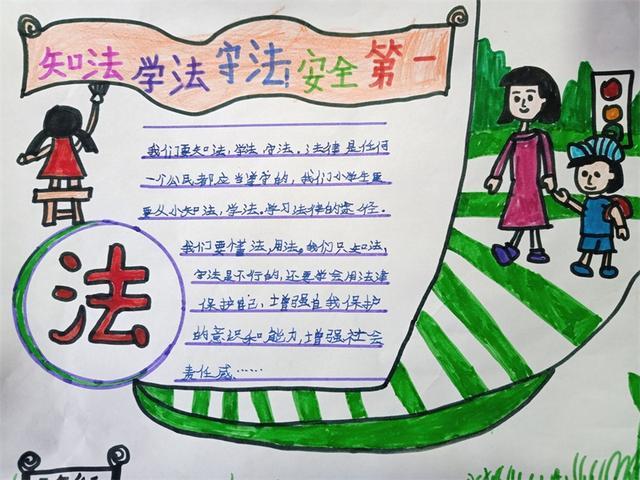 知法 学法 守法 安全 第一
我们要知法,学法,守法。法律是任何
一个公民都应当掌守的,我们小学生更
要从小知法,学法。学习法律的途径.
我们要懂法,用法。我们只知法,
守法是不行的,还要学会用法津
保护自己,增强自我保护
的意识和能力,增强社会
责任感……
法